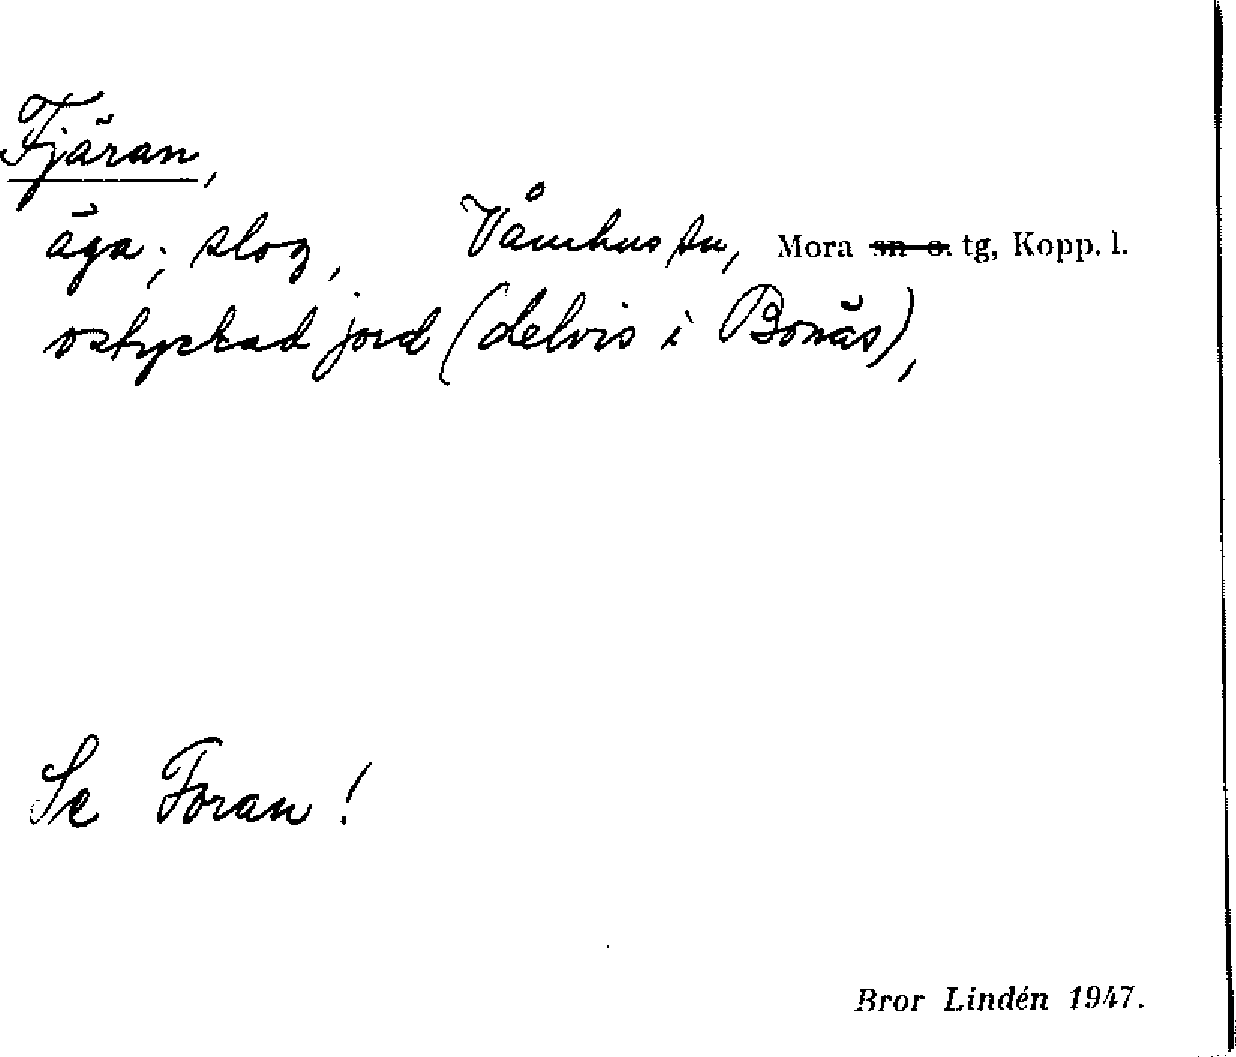 Fjäran,
äga; slog, Våmhus sn, Mora sn o. tg, Kopp. l.
ostyckad jord (delvis i Bonäs),
Se Foran!
Bror Lindén 1947.